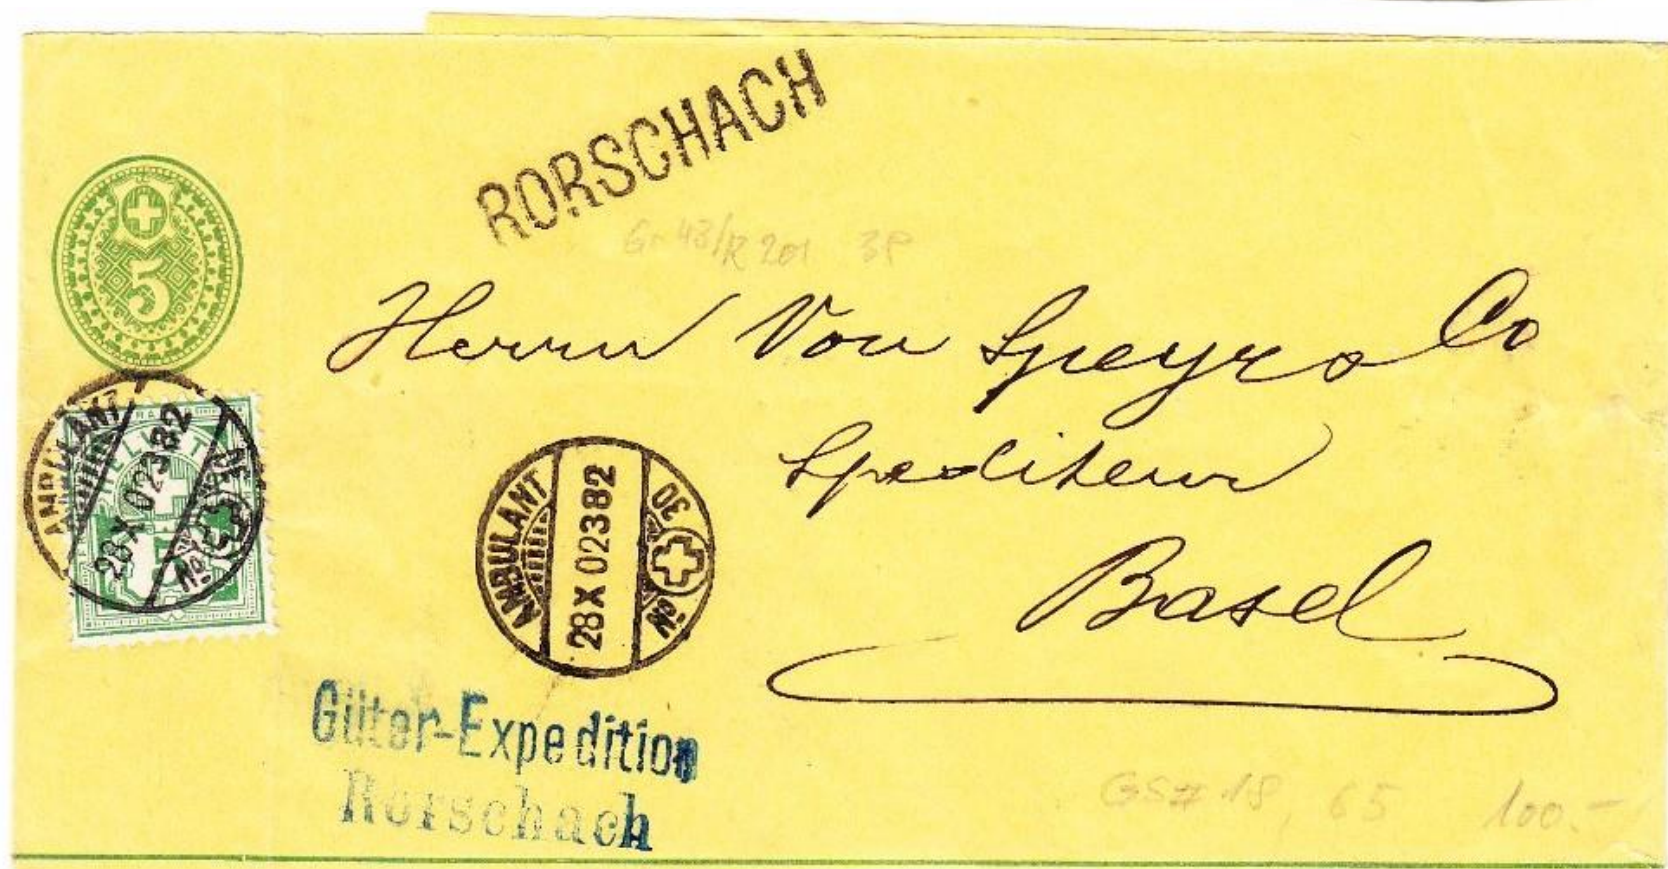 RORSCHACH
Gr 43/R 201 3P
5
Herrn Von Speyr & Co
Spediteur
Basel
FRANCO
HELVETIA
AMBULANT
28 X 02 382
No 30
AMBULANT
28 X 02382
No 30
Güter-Expedition
Rorschach
GS# 18, 65 100.-